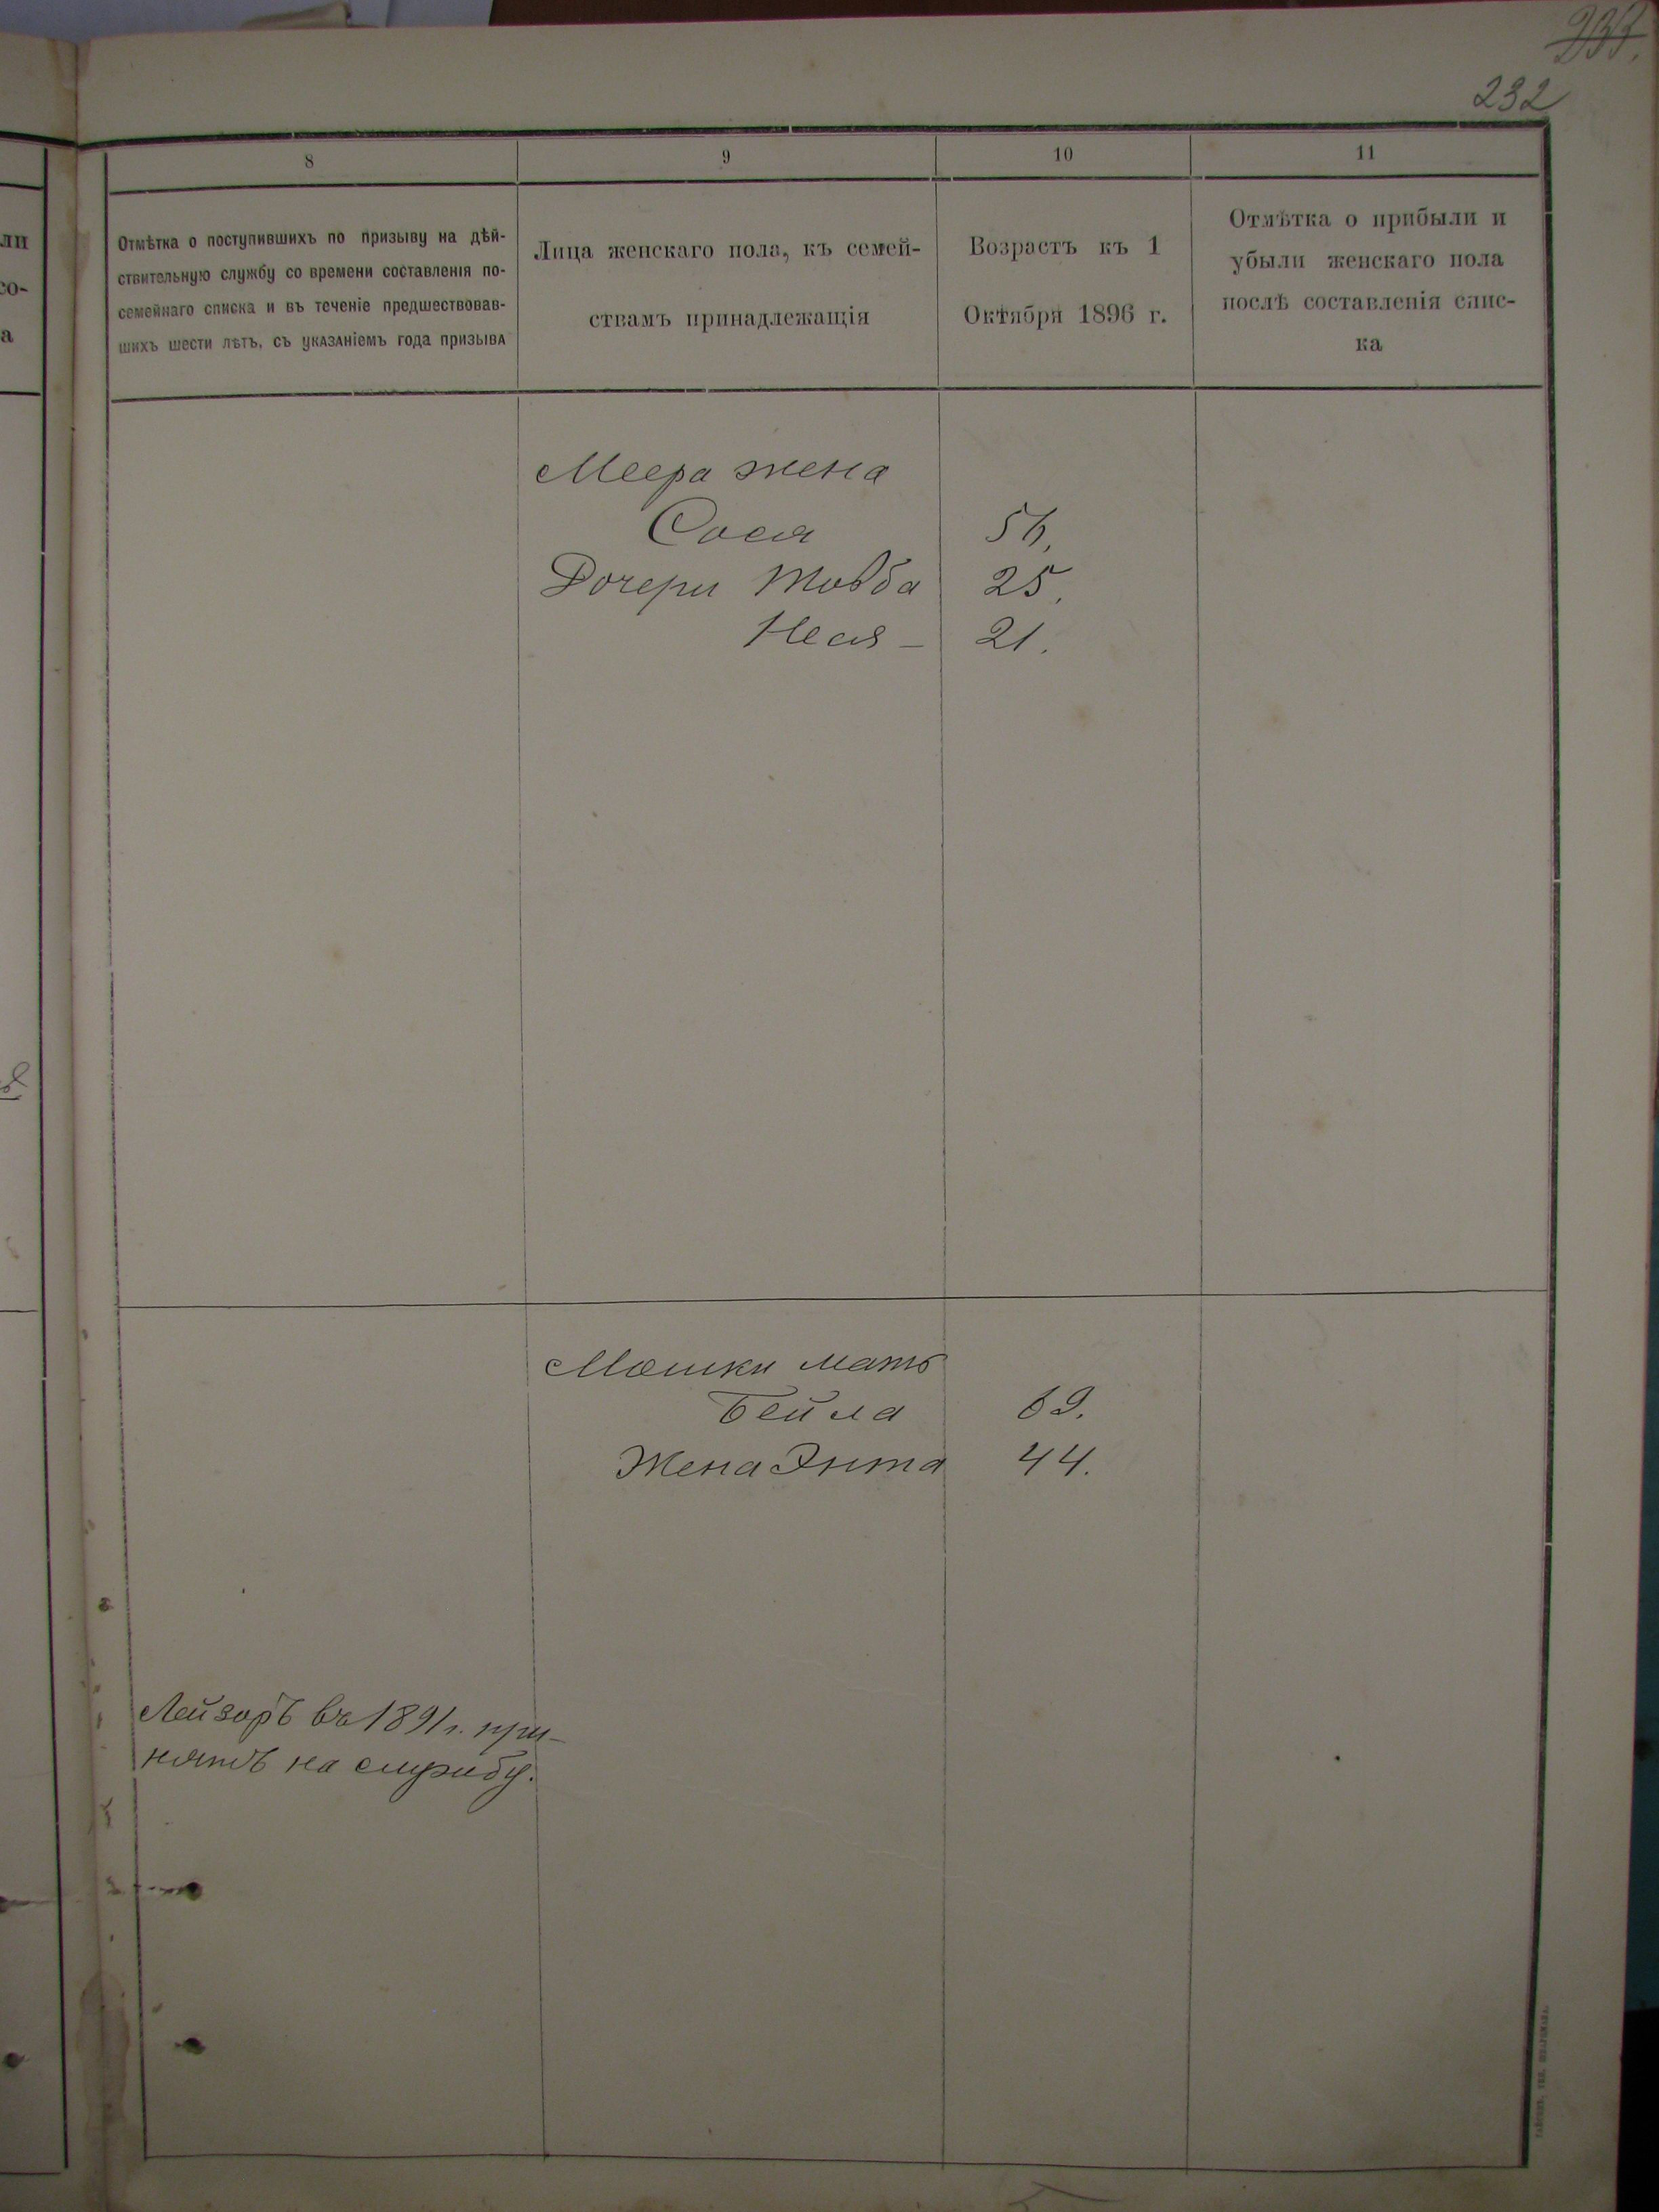 232
8
9
10
11
Отмѣтка о поступившихъ по призыву на дѣй-
ствительную службу со времени составленія по-
семейнаго списка и въ теченіе предшествовав-
шихъ шести лѣтъ, съ указаніемъ года призыва
Лица женскаго пола, къ семей-
ствамъ принадлежащія
Возрастъ къ 1
Октября 1896 г.
Отмѣтка о прибыли и
убыли женскаго пола
послѣ составленія спис-
ка
Меера жена
Сося
Дочери Товба 25.
Неся – 21.
Мошки мать
Бейла 69.
Жена Энта 44.
Лейзоръ въ 1891 г. при-
нятъ на службу.